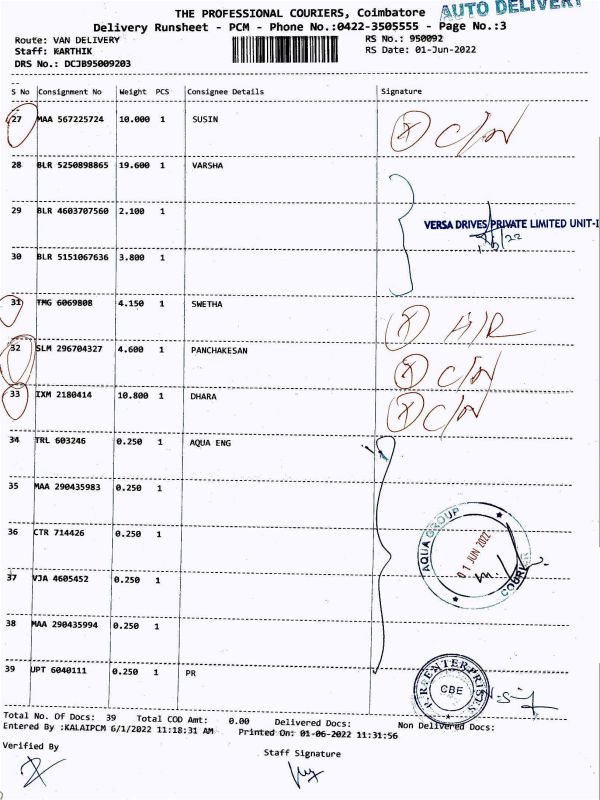 THE PROFESSIONAL COURIERS, Coimbatore
AUTO DELIVERY
Delivery Runsheet - PCM - Phone No.:0422-3505555 - Page No.:3
Route: VAN DELIVERY
RS No.: 950092
Staff: KARTHIK
RS Date: 01-Jun-2022
DRS No.: DCJB95009203
S No Consignment No Weight PCS Consignee Details Signature
27 MAA 567225724 10.000 1 SUSIN
28 BLR 5250898865 19.600 1 VARSHA
29 BLR 4603707560 2.100 1
VERSA DRIVES PRIVATE LIMITED UNIT-I
30 BLR 5151067636 3.800 1
31 TMG 6069808 4.150 1 SWETHA
32 SLM 296704327 4.600 1 PANCHAKESAN
33 IXM 2180414 10.800 1 DHARA
34 TRL 603246 0.250 1 AQUA ENG
35 MAA 290435983 0.250 1
36 CTR 714426 0.250 1
AQUA GROUP
01 JUN 2022
COURIER
37 VJA 4605452 0.250 1
38 MAA 290435994 0.250 1
39 UPT 6040111 0.250 1 PR
P.R. ENTERPRISES
CBE
Total No. Of Docs: 39 Total COD Amt: 0.00 Delivered Docs: Non Delivered Docs:
Entered By :KALAIPCM 6/1/2022 11:18:31 AM Printed On: 01-06-2022 11:31:56
Verified By
Staff Signature